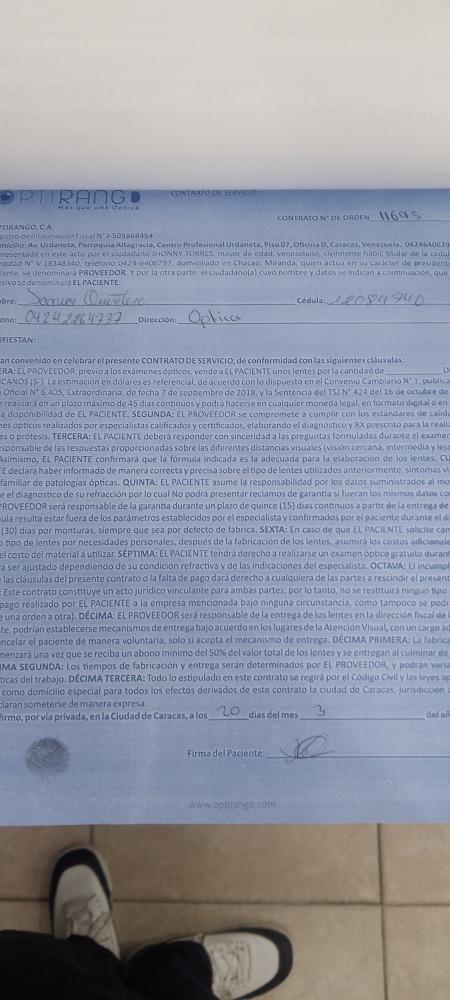 OPTIRANGO
Más que una Óptica
CONTRATO DE SERVICIO
CONTRATO N° DE ORDEN 11695
PTIRANGO, C.A.
gistro de Información Fiscal N° J-505868454
micilio: Av. Urdaneta, Parroquia Altagracia, Centro Profesional Urdaneta, Piso 07, Oficina D, Caracas, Venezuela. 0424640679
presentada en este acto por el ciudadano JHONNY TORRES, mayor de edad, venezolano, civilmente hábil, titular de la cédul
ntidad N° V-18348340, teléfono 0424-6406797, domiciliado en Chacao, Miranda, quien actúa en su carácter de president
lante, se denominará PROVEEDOR. Y por la otra parte, el ciudadano(a) cuyo nombre y datos se indican a continuación, que
esivo se denominará EL PACIENTE:
bre: Quintero Cédula:
ono: 04242264737 Dirección: Optica
IFIESTAN:
an convenido en celebrar el presente CONTRATO DE SERVICIO, de conformidad con las siguientes cláusulas:
ERA: EL PROVEEDOR, previo a los exámenes ópticos, vende a EL PACIENTE unos lentes por la cantidad de
ICANOS ($-). La estimación en dólares es referencial, de acuerdo con lo dispuesto en el Convenio Cambiario N° 1, publica
a Oficial N° 6.405, Extraordinaria, de fecha 7 de septiembre de 2018, y la Sentencia del TSJ N° 424 del 16 de octubre de
e realizará en un plazo máximo de 45 días continuos y podrá hacerse en cualquier moneda legal, en formato digital o en
a disponibilidad de EL PACIENTE. SEGUNDA: EL PROVEEDOR se compromete a cumplir con los estándares de calida
nes ópticos realizados por especialistas calificados y certificados, elaborando el diagnóstico y RX prescrito para la reali
es o prótesis. TERCERA: EL PACIENTE deberá responder con sinceridad a las preguntas formuladas durante el examen
sponsable de las respuestas proporcionadas sobre las diferentes distancias visuales (visión cercana, intermedia y leja
Asimismo, EL PACIENTE confirmará que la fórmula indicada es la adecuada para la elaboración de los lentes. CU
TE declara haber informado de manera correcta y precisa sobre el tipo de lentes utilizados anteriormente, síntomas vi
familiar de patologías ópticas. QUINTA: EL PACIENTE asume la responsabilidad por los datos suministrados al mo
e el diagnostico de su refracción por lo cual No podrá presentar reclamos de garantía si fueran los mismos datos co
PROVEEDOR será responsable de la garantía durante un plazo de quince (15) días continuos a partir de la entrega de
ula resulta estar fuera de los parámetros establecidos por el especialista y confirmados por el paciente durante el di
(30) días por monturas, siempre que sea por defecto de fábrica. SEXTA: En caso de que EL PACIENTE solicite can
o tipo de lentes por necesidades personales, después de la fabricación de los lentes, asumirá los costos adicionale
el costo del material a utilizar. SÉPTIMA: EL PACIENTE tendrá derecho a realizarse un examen óptico gratuito durant
rá ser ajustado dependiendo de su condición refractiva y de las indicaciones del especialista. OCTAVA: El incumpl
las cláusulas del presente contrato o la falta de pago dará derecho a cualquiera de las partes a rescindir el present
: Este contrato constituye un acto jurídico vinculante para ambas partes; por lo tanto, no se restituirá ningún tipo
pago realizado por EL PACIENTE a la empresa mencionada bajo ninguna circunstancia, como tampoco se podr
e una orden a otra). DÉCIMA: EL PROVEEDOR será responsable de la entrega de los lentes en la dirección fiscal de l
te, podrían establecerse mecanismos de entrega bajo acuerdo en los lugares de la Atención Visual, con un cargo ad
ncelar el paciente de manera voluntaria, solo si acepta el mecanismo de entrega. DÉCIMA PRIMERA: La fabrica
menzará una vez que se reciba un abono mínimo del 50% del valor total de los lentes y se entregan al culminar de
IMA SEGUNDA: Los tiempos de fabricación y entrega serán determinados por EL PROVEEDOR, y podrán varia
ticas del trabajo. DÉCIMA TERCERA: Todo lo estipulado en este contrato se regirá por el Código Civil y las leyes ap
como domicilio especial para todos los efectos derivados de este contrato la ciudad de Caracas, jurisdicción a
claran someterse de manera expresa.
firmo, por vía privada, en la Ciudad de Caracas, a los 20 días del mes 3 del añ
Firma del Paciente:
www.optirango.com